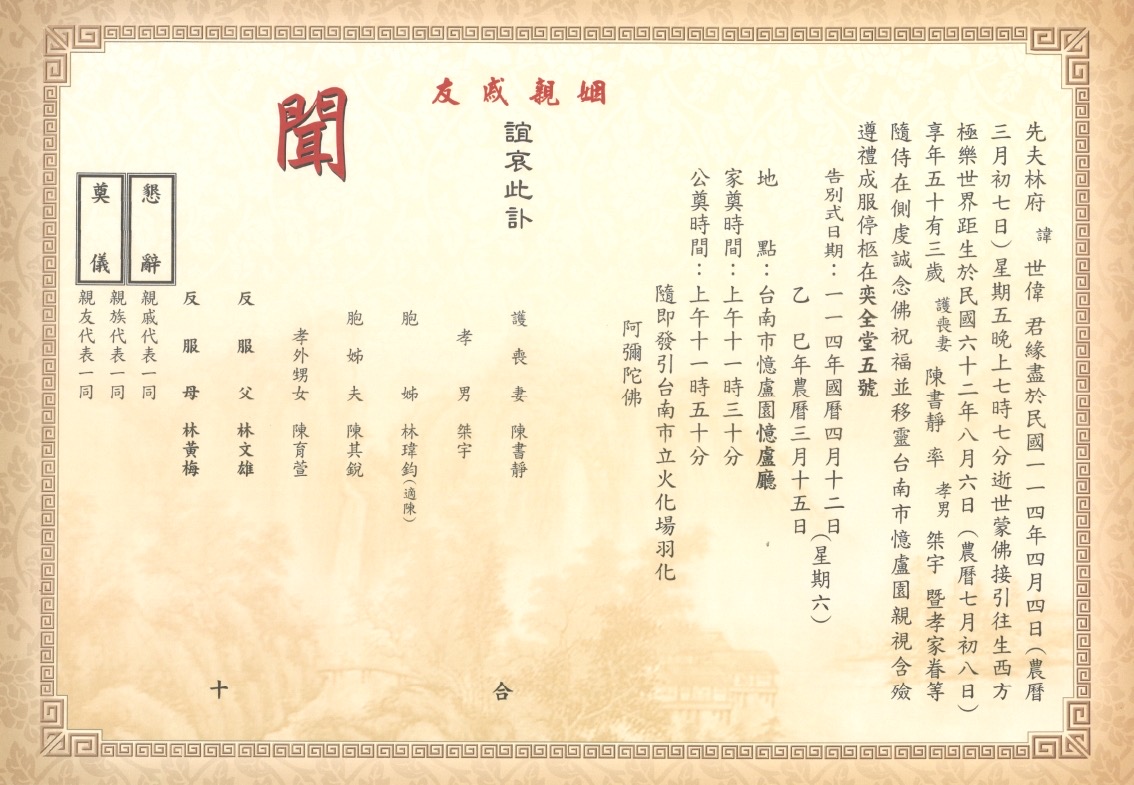 先夫林府 諱 世偉 君緣盡於民國一一四年四月四日（農曆
三月初七日）星期五晚上七時七分逝世蒙佛接引往生西方
極樂世界距生於民國六十二年八月六日（農曆七月初八日）
享年五十有三歲 護喪妻 陳書靜 率 孝男 桀宇 暨孝家眷等
隨侍在側虔誠念佛祝福並移靈台南市憶盧園親視含殮
遵禮成服停柩在奕全堂五號
告別式日期：一一四年國曆四月十二日（星期六）
乙巳年農曆三月十五日
地點：台南市憶盧園憶盧廳
家奠時間：上午十一時三十分
公奠時間：上午十一時五十分
隨即發引台南市立火化場羽化
阿彌陀佛
姻親戚友
誼哀此訃
聞
護喪妻 陳書靜
孝男 桀宇
胞姊 林瑋鈞（適陳）
胞姊夫 陳其銳
孝外甥女 陳育萱
反服父 林文雄
反服母 林黃梅
懇辭
奠儀
親戚代表一同
親族代表一同
親友代表一同
合十